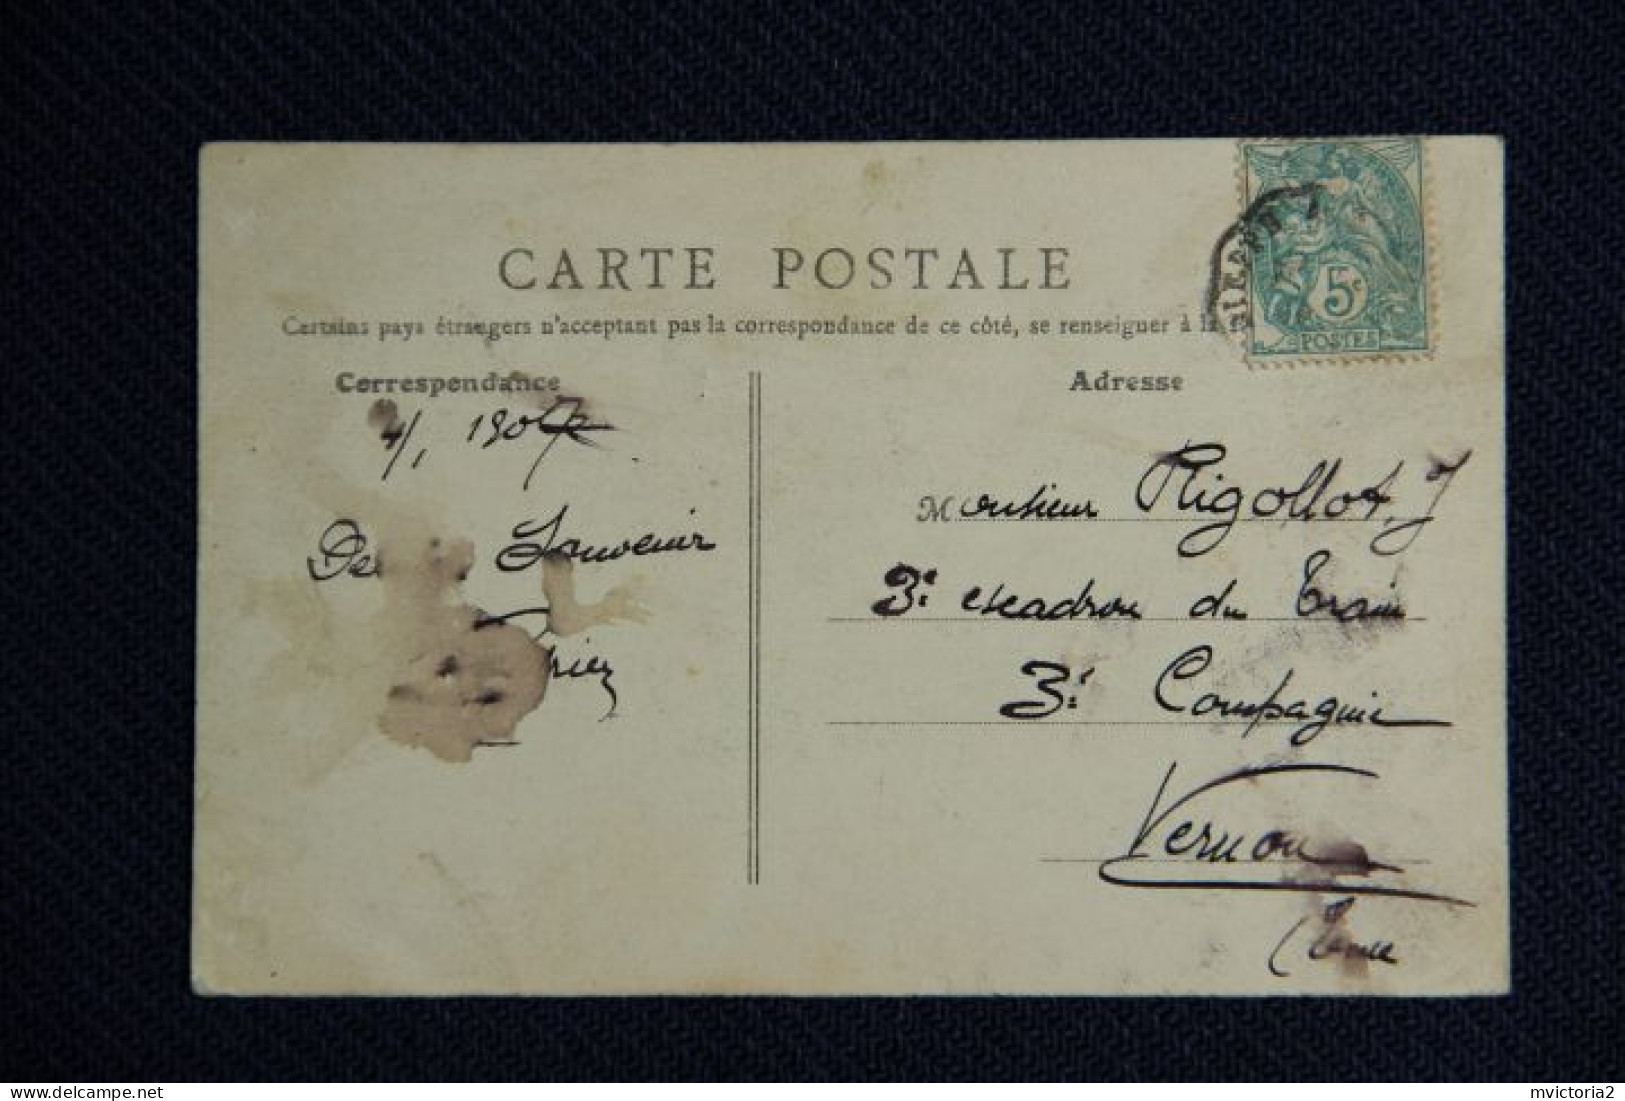 CARTE POSTALE
Certains pays étrangers n'acceptant pas la correspondance de ce côté, se renseigner à la
Correspondance
Adresse
5c
POSTES
4/1 1907
Souvenir
Monsieur Rigollot. J
3e escadron du Train
3e Compagnie
Vernon
(Eure
delcampe.net
mvictoria2